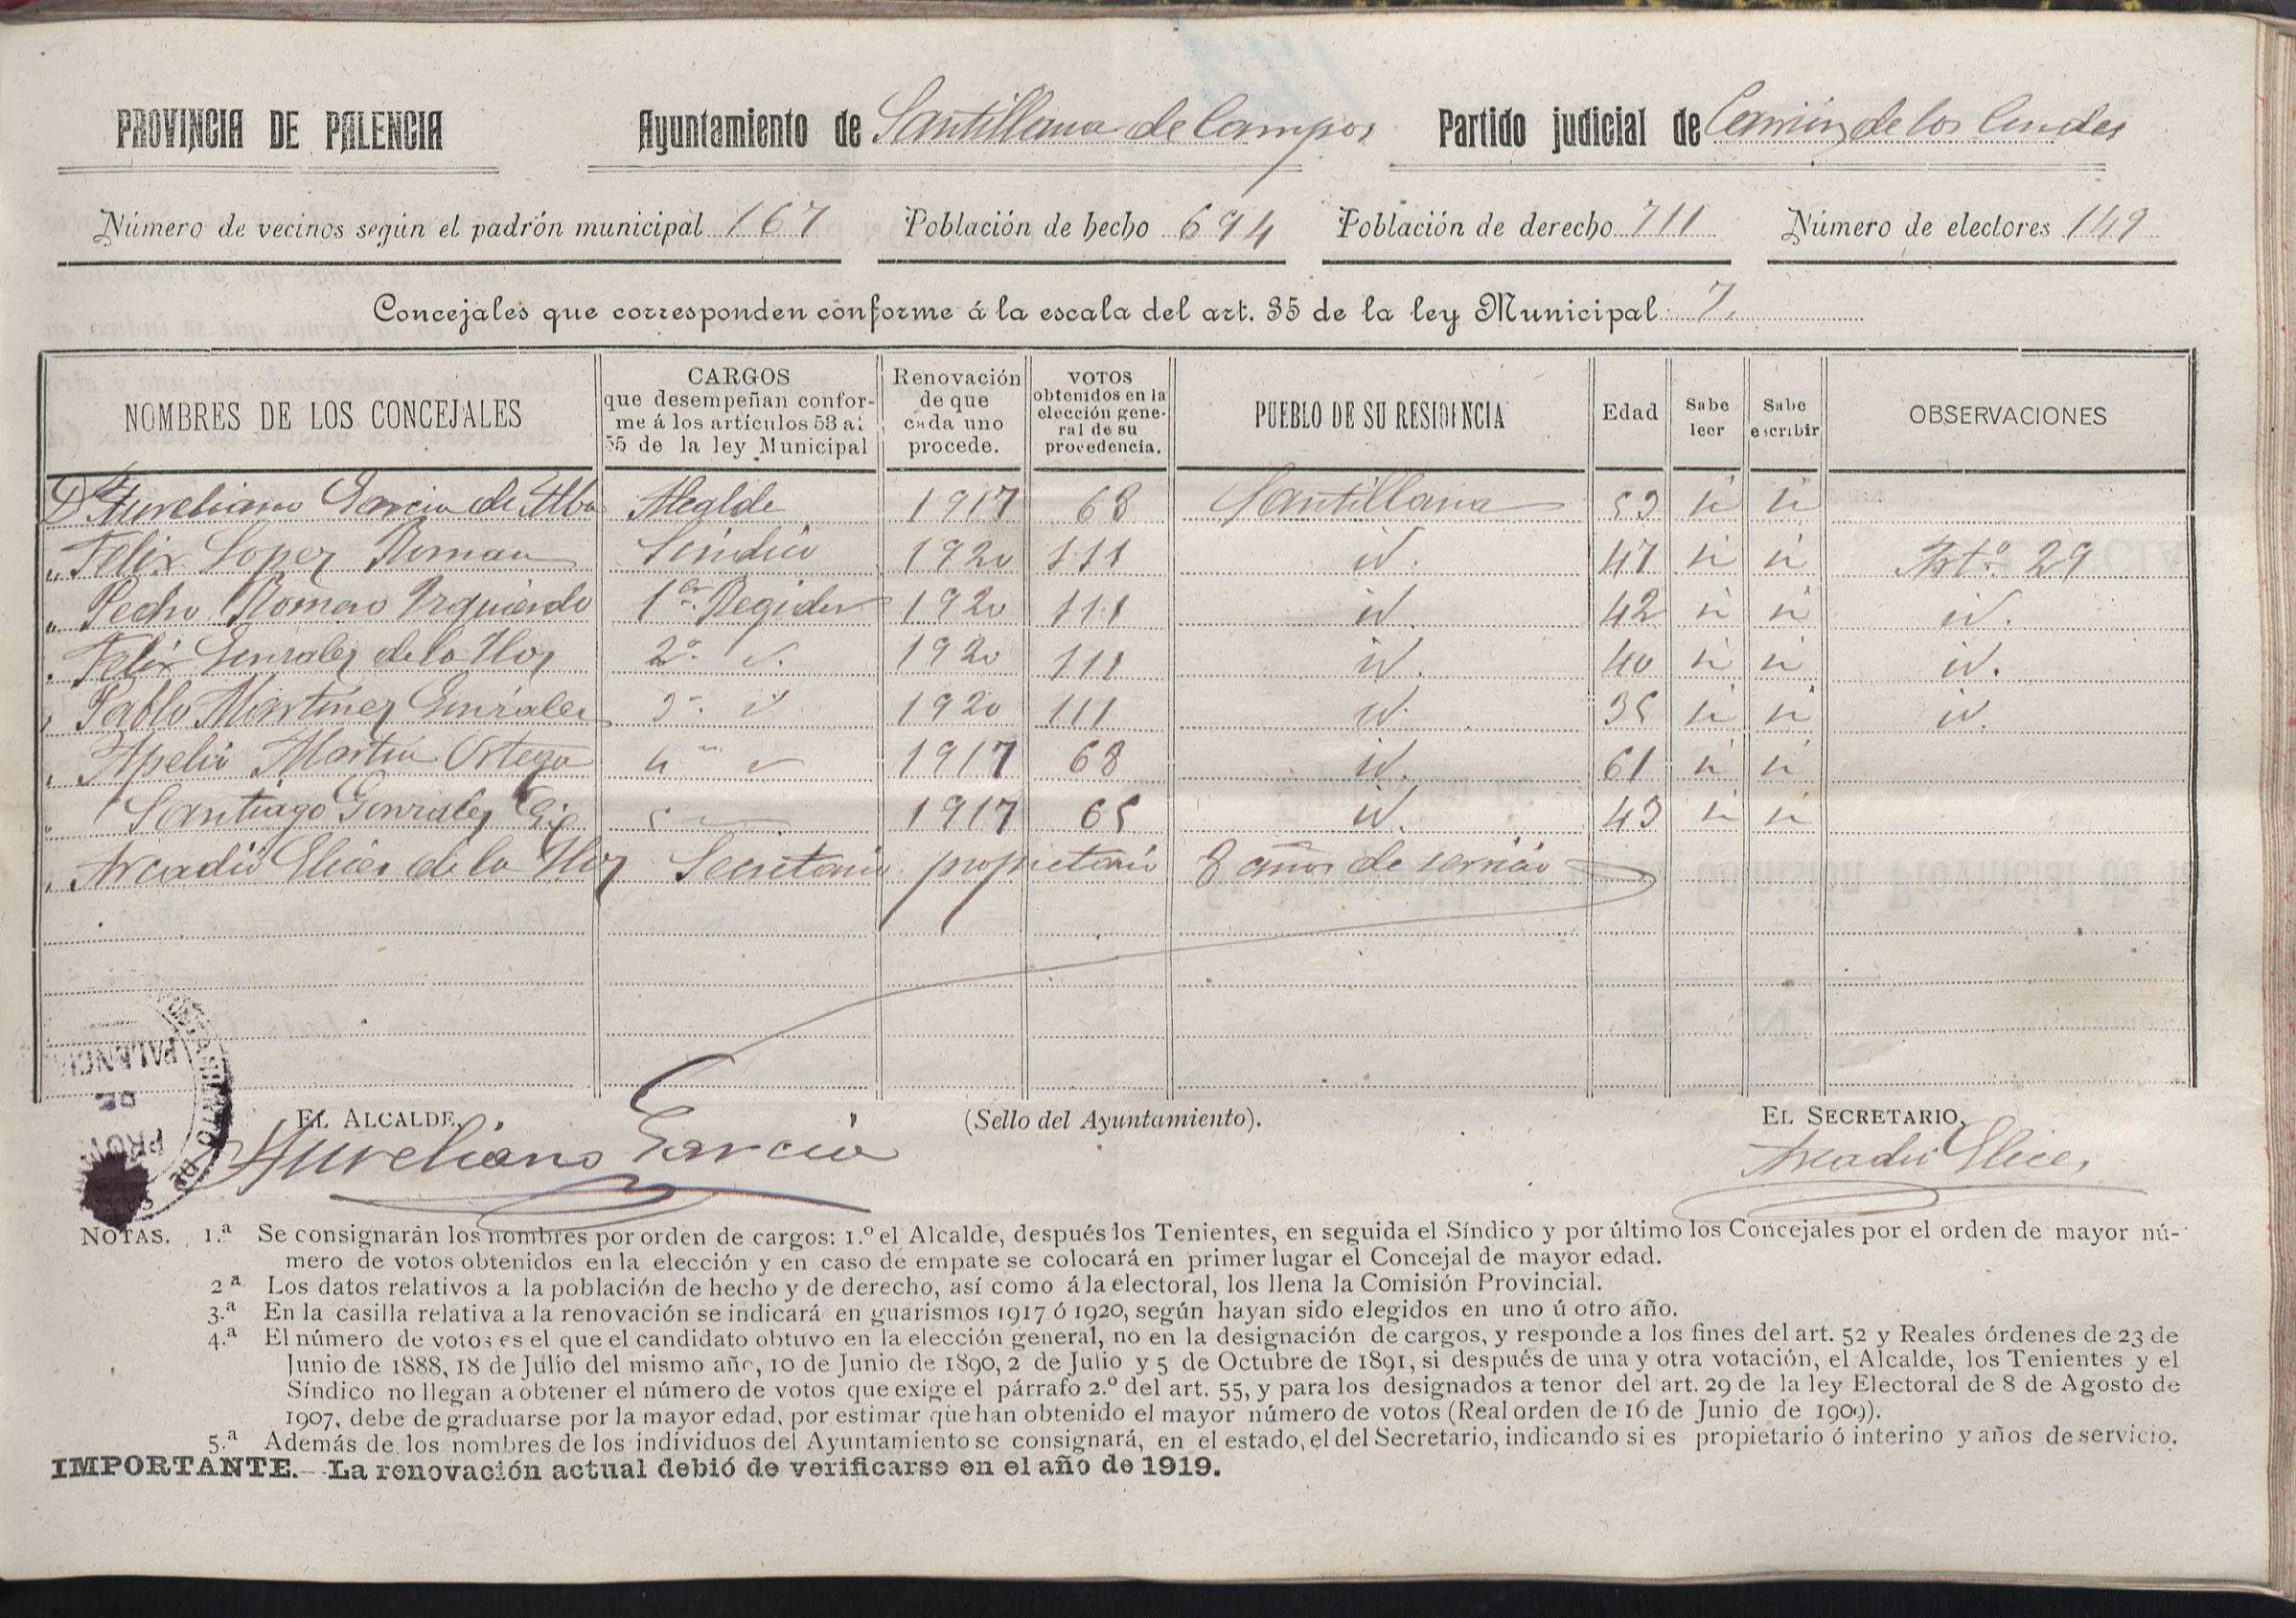 PROVINCIA DE PALENCIA Ayuntamiento de Santillana de Campos Partido judicial de Carrión de los Condes
Número de vecinos según el padrón municipal 167 Población de hecho 694 Población de derecho 711 Número de electores 149
Concejales que corresponden conforme á la escala del art. 35 de la ley Municipal: 7.
NOMBRES DE LOS CONCEJALES CARGOS que desempeñan conforme á los artículos 53 al 55 de la ley Municipal Renovación de que cada uno procede. VOTOS obtenidos en la elección general de su procedencia. PUEBLO DE SU RESIDENCIA Edad Sabe leer Sabe escribir OBSERVACIONES
Dn Aureliano Garcia de Alba Alcalde 1917 68 Santillana 53 si si
„ Felix Lopez Roman Síndico 1920 111 id. 47 si si Art.º 29
„ Pedro Romero Izquierdo 1er Regidor 1920 111 id. 42 si si id.
„ Felix Gonzalez de la Hoz 2º id. 1920 111 id. 40 si si id.
„ Pablo Martinez Gonzalez 3º id 1920 111 id. 35 si si id.
„ Martin Ortega 4º id 1917 68 id. 61 si si
„ Santiago Gonzalez Gil 5 1917 65 id. 43 si si
„ Arcadio Elices de la Hoz Secretario propietario 8 años de servicio
EL ALCALDE, (Sello del Ayuntamiento). EL SECRETARIO,
Aureliano Garcia Arcadio Elices
PALENCIA
DE
NOTAS. 1.ª Se consignarán los nombres por orden de cargos: 1.º el Alcalde, después los Tenientes, en seguida el Síndico y por último los Concejales por el orden de mayor nú-
mero de votos obtenidos en la elección y en caso de empate se colocará en primer lugar el Concejal de mayor edad.
2ª Los datos relativos a la población de hecho y de derecho, así como á la electoral, los llena la Comisión Provincial.
3.ª En la casilla relativa a la renovación se indicará en guarismos 1917 ó 1920, según hayan sido elegidos en uno ú otro año.
4.ª El número de votos es el que el candidato obtuvo en la elección general, no en la designación de cargos, y responde a los fines del art. 52 y Reales órdenes de 23 de
Junio de 1888, 18 de Júlio del mismo año, 10 de Junio de 1890, 2 de Julio y 5 de Octubre de 1891, si después de una y otra votación, el Alcalde, los Tenientes y el
Síndico no llegan a obtener el número de votos que exige el párrafo 2.º del art. 55, y para los designados a tenor del art. 29 de la ley Electoral de 8 de Agosto de
1907, debe de graduarse por la mayor edad, por estimar que han obtenido el mayor número de votos (Real orden de 16 de Junio de 1909).
5.ª Además de los nombres de los individuos del Ayuntamiento se consignará, en el estado, el del Secretario, indicando si es propietario ó interino y años de servicio.
IMPORTANTE.—La renovación actual debió de verificarse en el año de 1919.